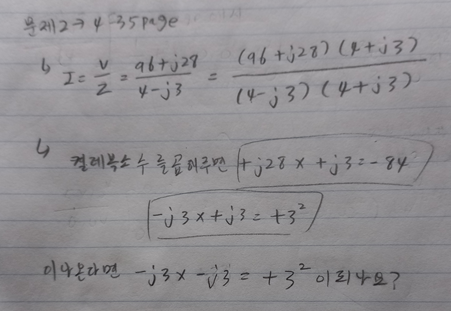 문제2→ 4-35page
↳ I = V/Z = 96+j28/4-j3 = (96+j28)(4+j3)/(4-j3)(4+j3)
↳ 켤레복소수를곱해주면 +j28 x +j3 = -84
-j3 x +j3 = +3²
이나온다면 -j3 x -j3 = +3² 이 되나요?